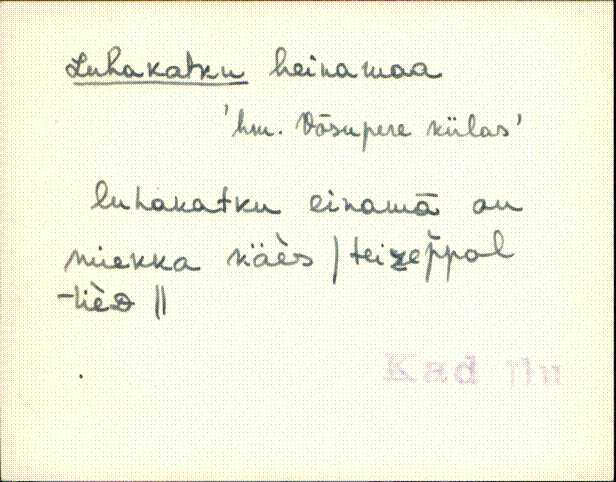 Luhakatku heinamaa
'hm. Võsupere külas'
luhakatku einamā an
miekka käès | teizeppal
-tièD ||
Kad